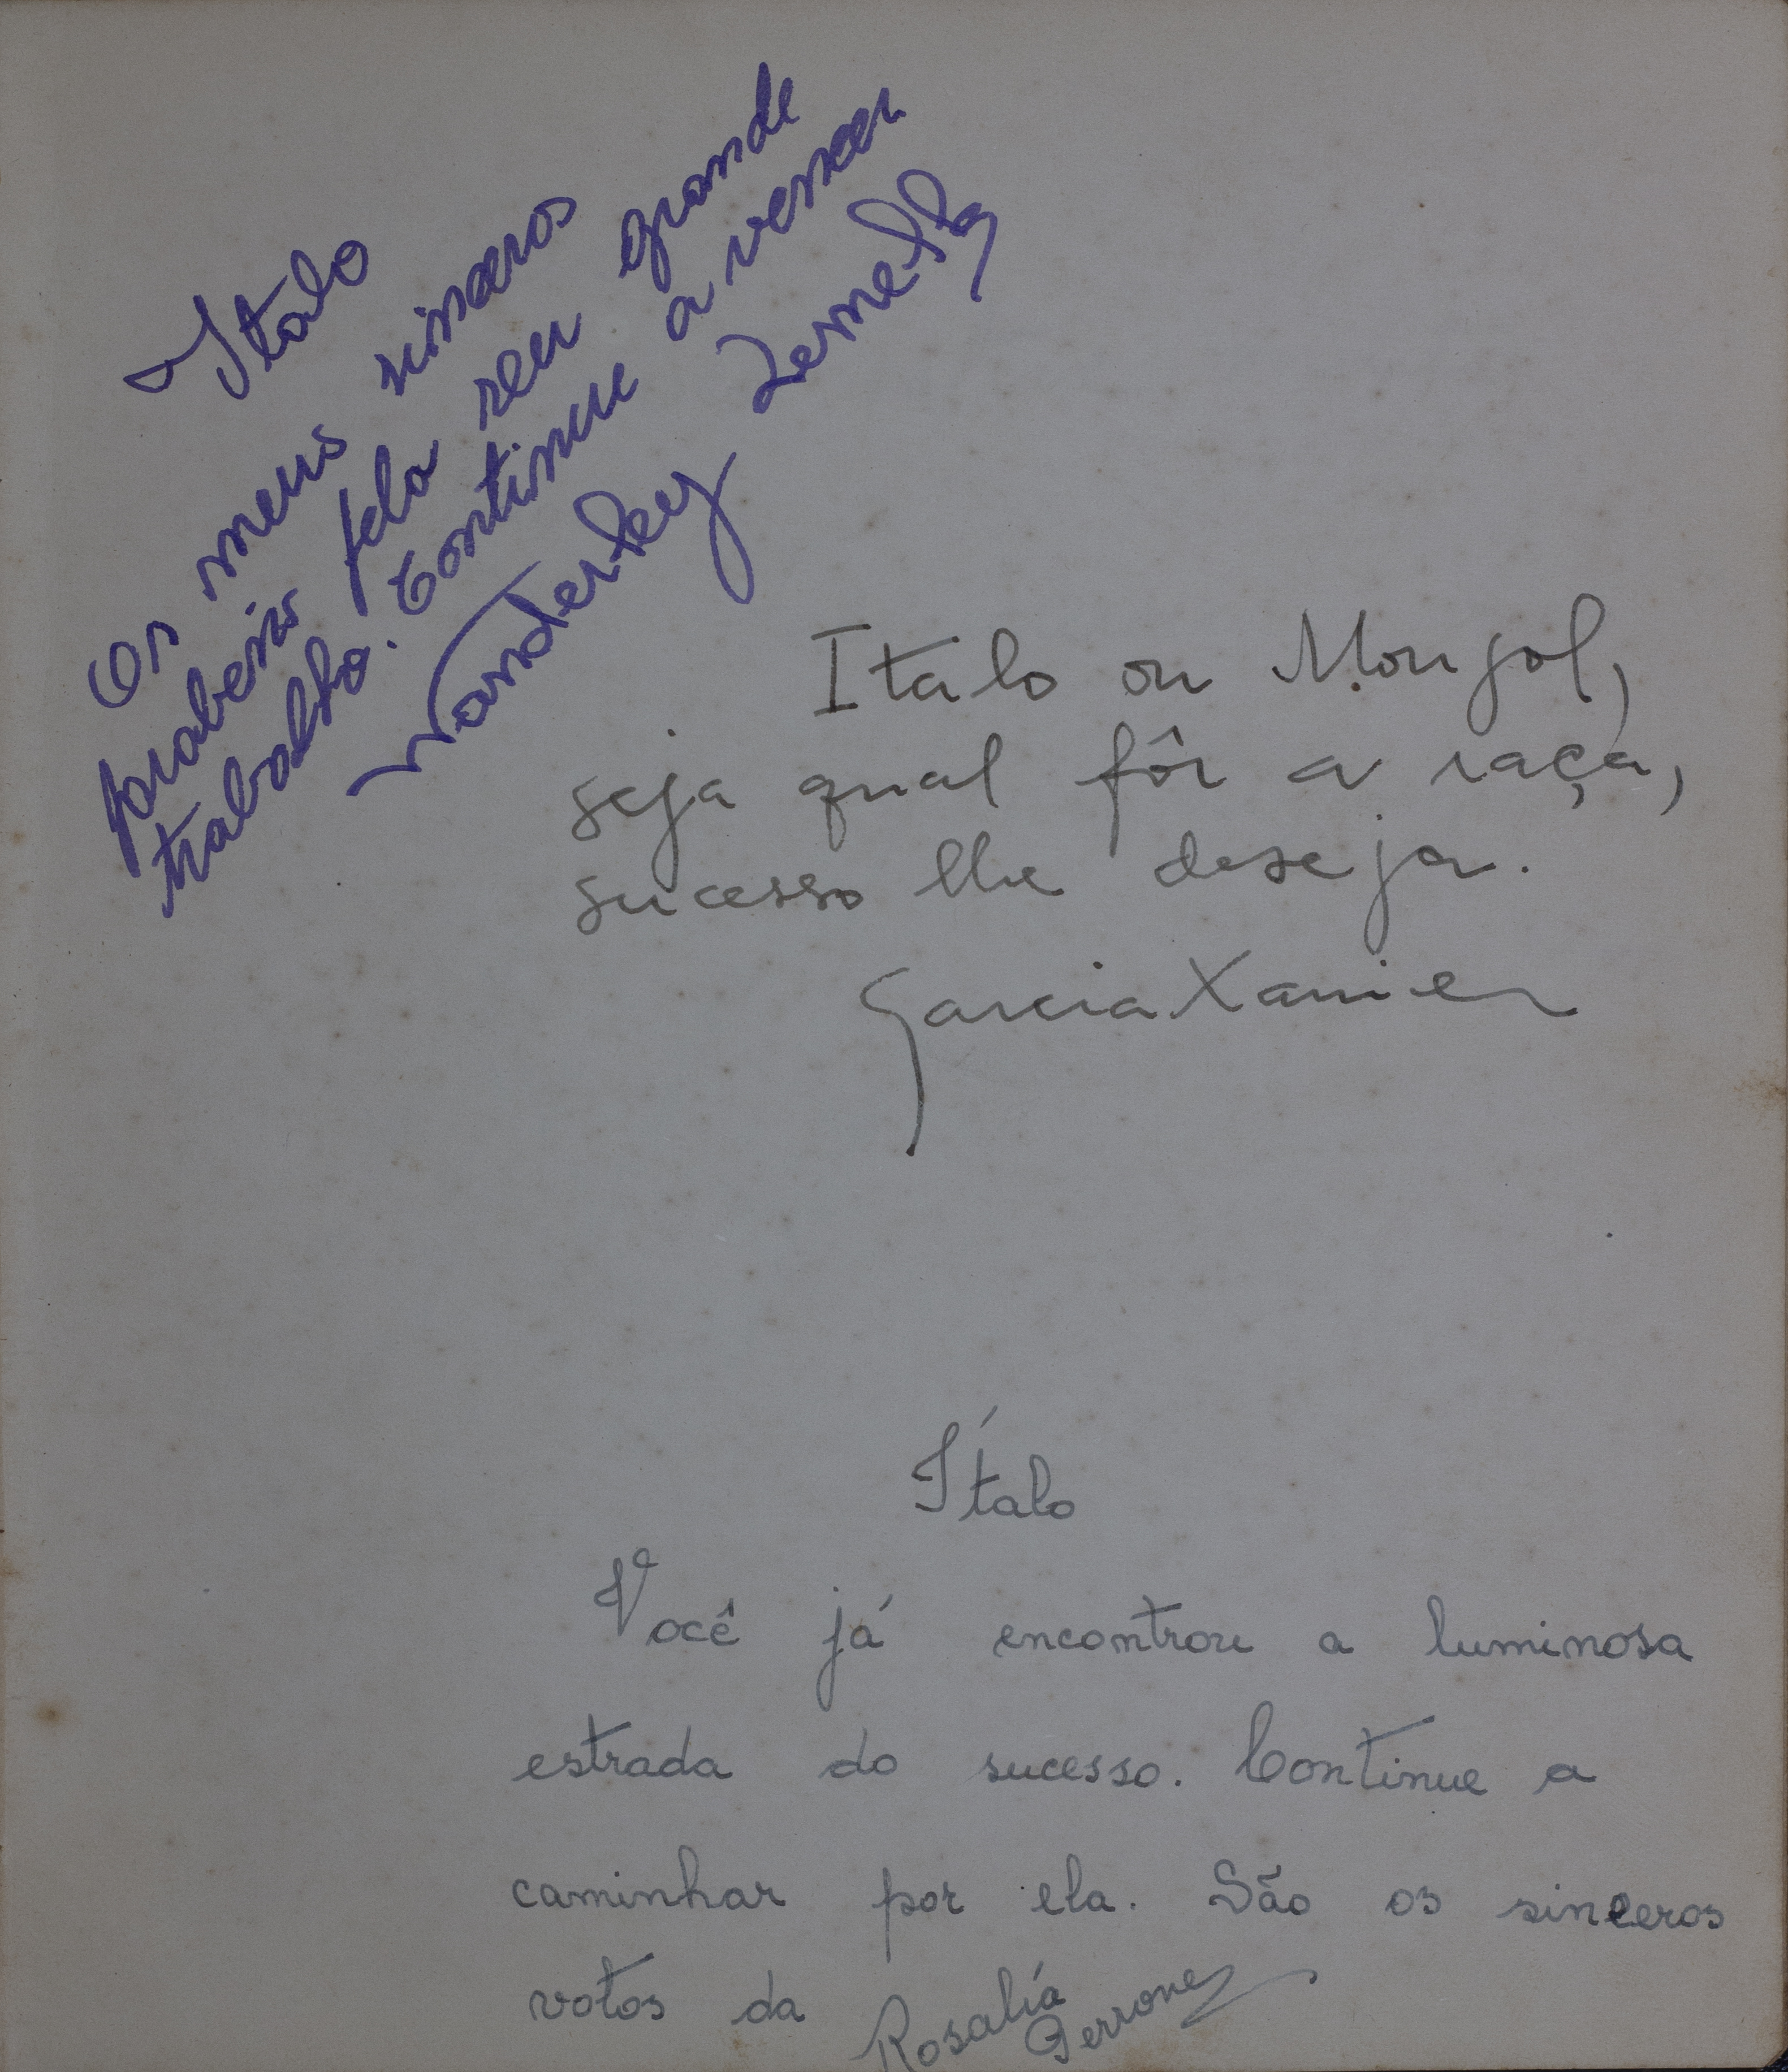 Italo
Os meus sinceros
parabens pelo seu grande
trabalho. Continue a vencer
Wanderley Zemella
Italo ou Mongol,
seja qual fôr a raça,
sucesso lhe deseja.
Garcia Xavier
Ítalo
Você já encontrou a luminosa
estrada do sucesso. Continue a
caminhar por ela. São os sinceros
votos da Rosalía
Perrone